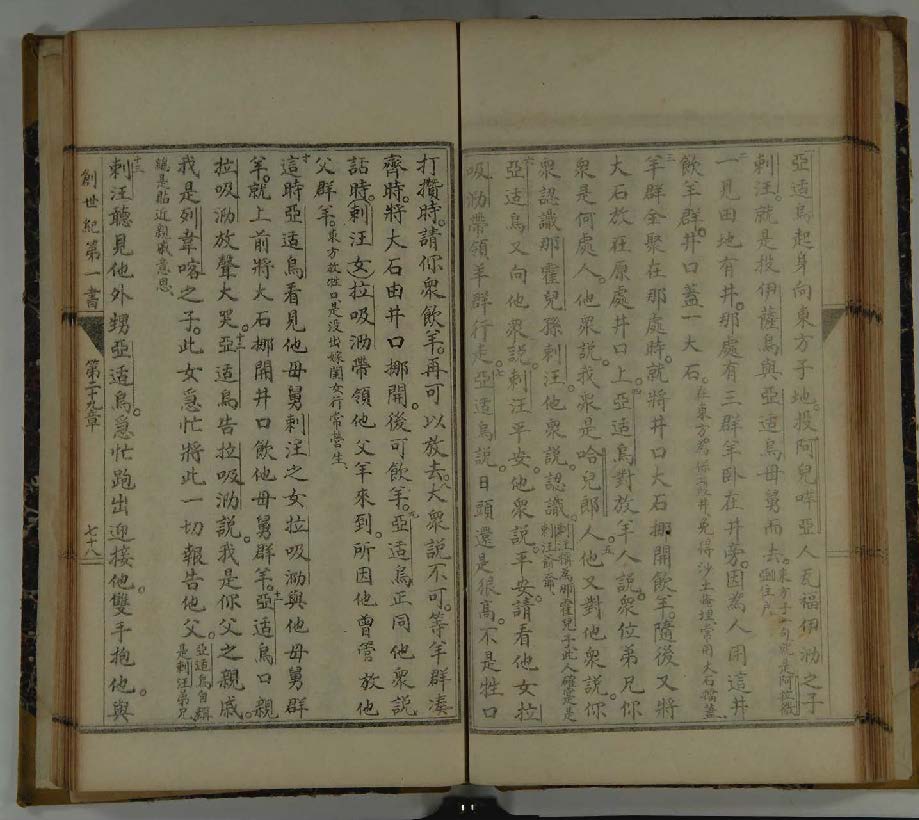 亞适烏起身向東方子地。投阿兒哶亞人瓦福伊泐之子
剌汪。就是投伊薩烏與亞适烏母舅而去。東方子一句就是阿拉
一見田地有井。那處有三群羊卧在井旁。因為人用這井
飲羊群。井口蓋一大石。在東方為保葢井免得沙土掩埋常用大石描蓋
羊群全聚在那處時。就將井口大石挪開飲羊。隨後又將
大石放在原處井口上。亞适烏對放羊人說。衆位弟兄。你
衆是何處人。他衆說。我衆是哈兒郎人。他又對他衆說。你
衆認識那霍兒孫剌汪。他衆說。認識。剌汪稱為那霍兒子此人確實是剌汪爺爺
亞适烏又向他衆說。剌汪平安。他衆說平安。請看他女拉
吸泐帶領羊群行走。亞适烏說。日頭還是狠高。不是牲口
打攢時。請你衆飲羊。再可以放去。大衆說不可。等羊群湊
齊時。將大石由井口挪開。後可飲羊。亞适烏正同他衆說
話時。剌汪女拉吸泐帶領他父羊來到。所因他曾嘗放他
父群羊。東方放牲口是沒出嫁閨女行常營生
這時亞适烏看見他母舅剌汪之女拉吸泐與他母舅群
羊。就上前將大石挪開井口飲他母舅群羊。亞适烏口親
拉吸泐放聲大哭。亞适烏告拉吸泐說。我是你父之親戚。
我是列韋喀之子。此女急忙將此一切報告他父。亞适烏自稱是剌汪弟兄
總是貼近親戚意思
剌汪聽見他外甥亞适烏。急忙跑出迎接他。雙手抱他。與
創世紀第一書 第二十九章 七十八